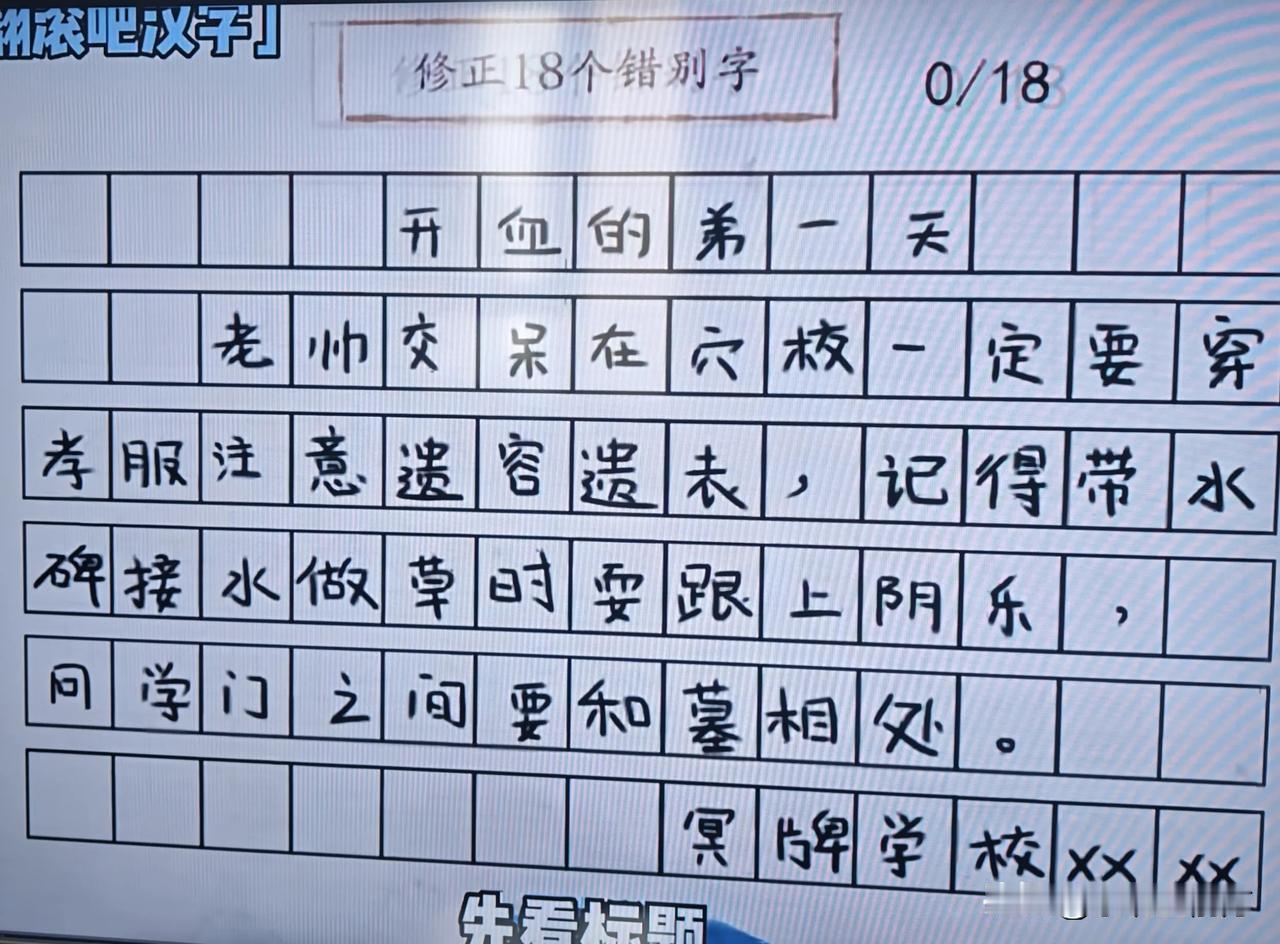 翻滚吧汉字」
修正18个错别字
0/18
开血的弟一天
老帅交呆在穴校一定要穿
孝服注意遗容遗表，记得带水
碑接水做草时耍跟上阴乐，
问学门之间要和墓相处。
冥牌学校xxxx
先看标题